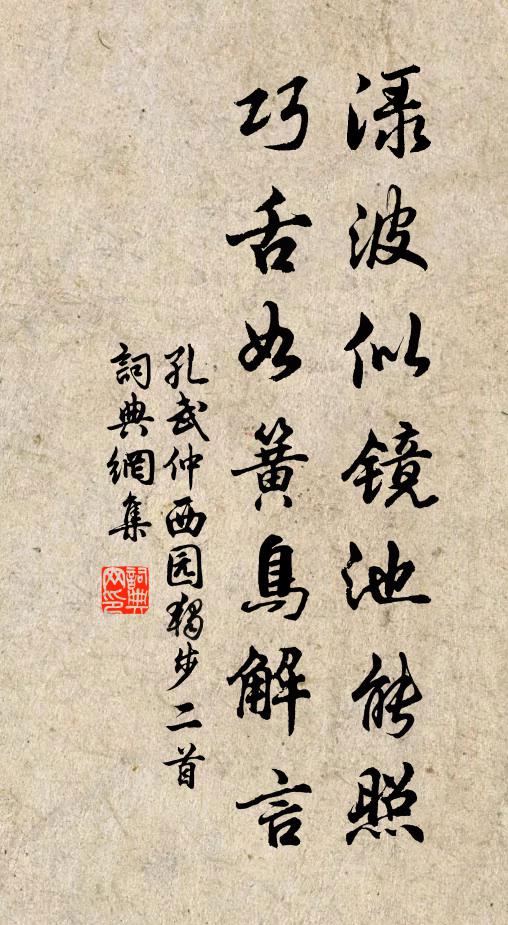 渌波似镜池能照
巧舌如簧鸟解言
孔武仲西园独步二首
詞典網集
詞典網印